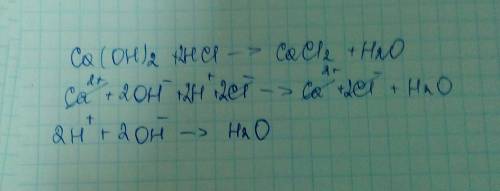 Ca(OH)2 + 2HCl -> CaCl2 + H2O
Ca²⁺ + 2OH⁻ + 2H⁺ + 2Cl⁻ -> Ca²⁺ + 2Cl⁻ + H2O
2H⁺ + 2OH⁻ -> H2O